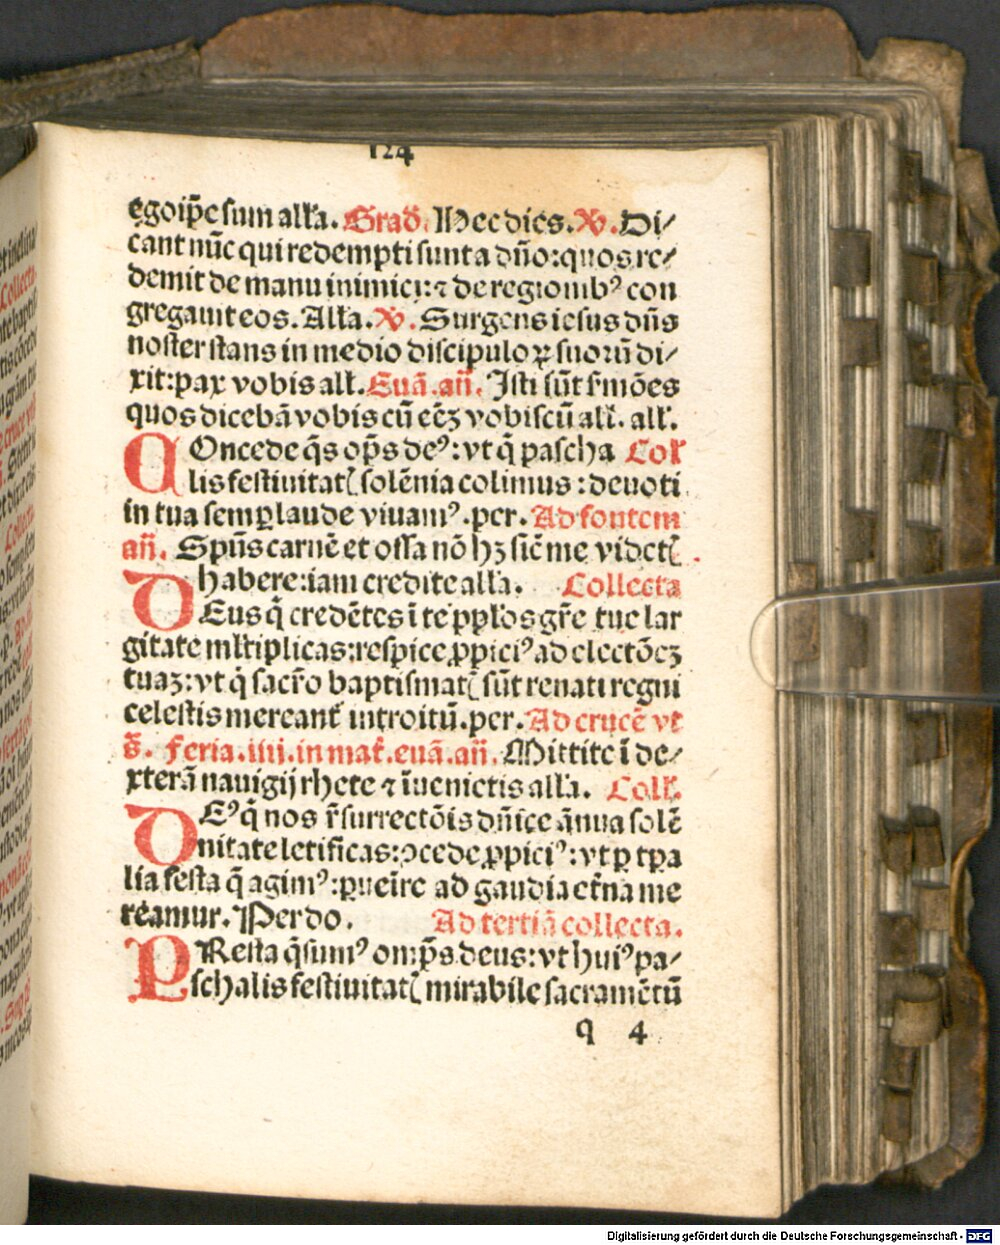 124
egoip̃e sum all'a. Grad̃. Hec dies. V. Di⸗
cant nũc qui redempti sunt a dño: quos re⸗
demit de manu inimici: ⁊ de regionibꝰ con
gregauit eos. All'a. V. Surgens iesus dñs
noster stans in medio discipuloꝝ suorũ di⸗
xit: pax vobis all'. Euã. añ. Isti sũt s'mões
quos dicebã vobis cũ eẽꝫ vobiscũ all'. all'.
COncede q̃s op̃s deꝰ: vt q̃ pascha Col'
lis festiuitatꝭ solẽnia colimus: deuoti
in tua semꝑ laude viuamꝰ. per. Ad fontem
añ. Spũs carnẽ et ossa nõ hꝫ sic̃ me videtꝭ
habere: iam credite all'a. Collecta
DEus q̃ credẽtes ĩ te ppl'os gr̃e tue lar
gitate ml'tiplicas: respice ꝓpiciꝰ ad electõeꝫ
tuaꝫ: vt q̃ sacr̃o baptismatꝭ sũt renati regni
celestis mereant' introitũ. per. Ad crucẽ vt
s̃. Feria. iiii. in mat'. euã. añ. Mittite ĩ de⸗
xterã nauigij rhete ⁊ ĩuenietis all'a. Coll'.
DEꝰ q̃ nos r̃surrectõis dñice ãnua solẽ
nitate letificas: ꝯcede ꝓpiciꝰ: vt ꝑ tp̃a
lia festa q̃ agimꝰ: ꝑueĩre ad gaudia et̃na me
reamur. Per do. Ad tertiã collecta.
PResta q̃sumꝰ omp̃s deus: vt huiꝰ pa⸗
schalis festiuitatꝭ mirabile sacramẽtũ
q 4
Digitalisierung gefördert durch die Deutsche Forschungsgemeinschaft - DFG